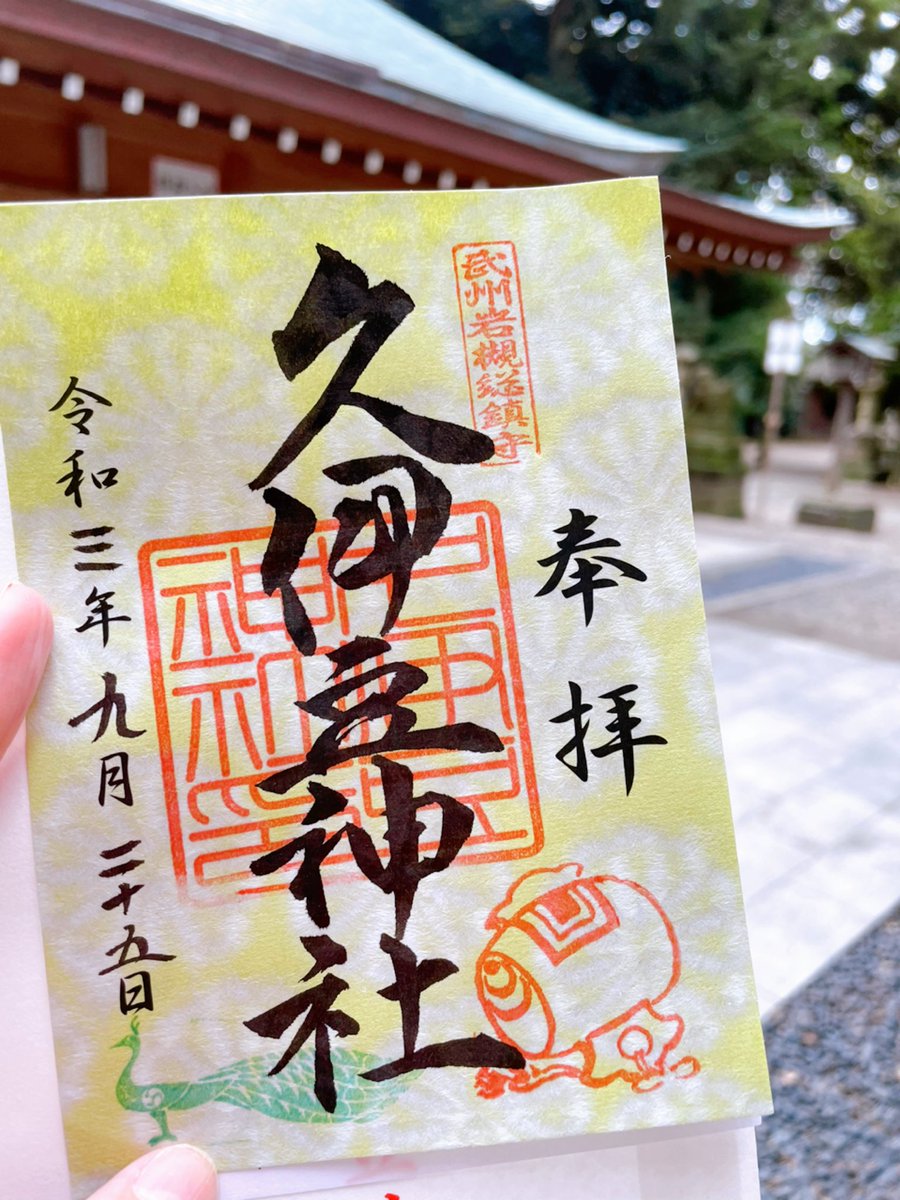 武州岩槻総鎮守
奉拝
久伊豆神社
令和三年九月二十五日